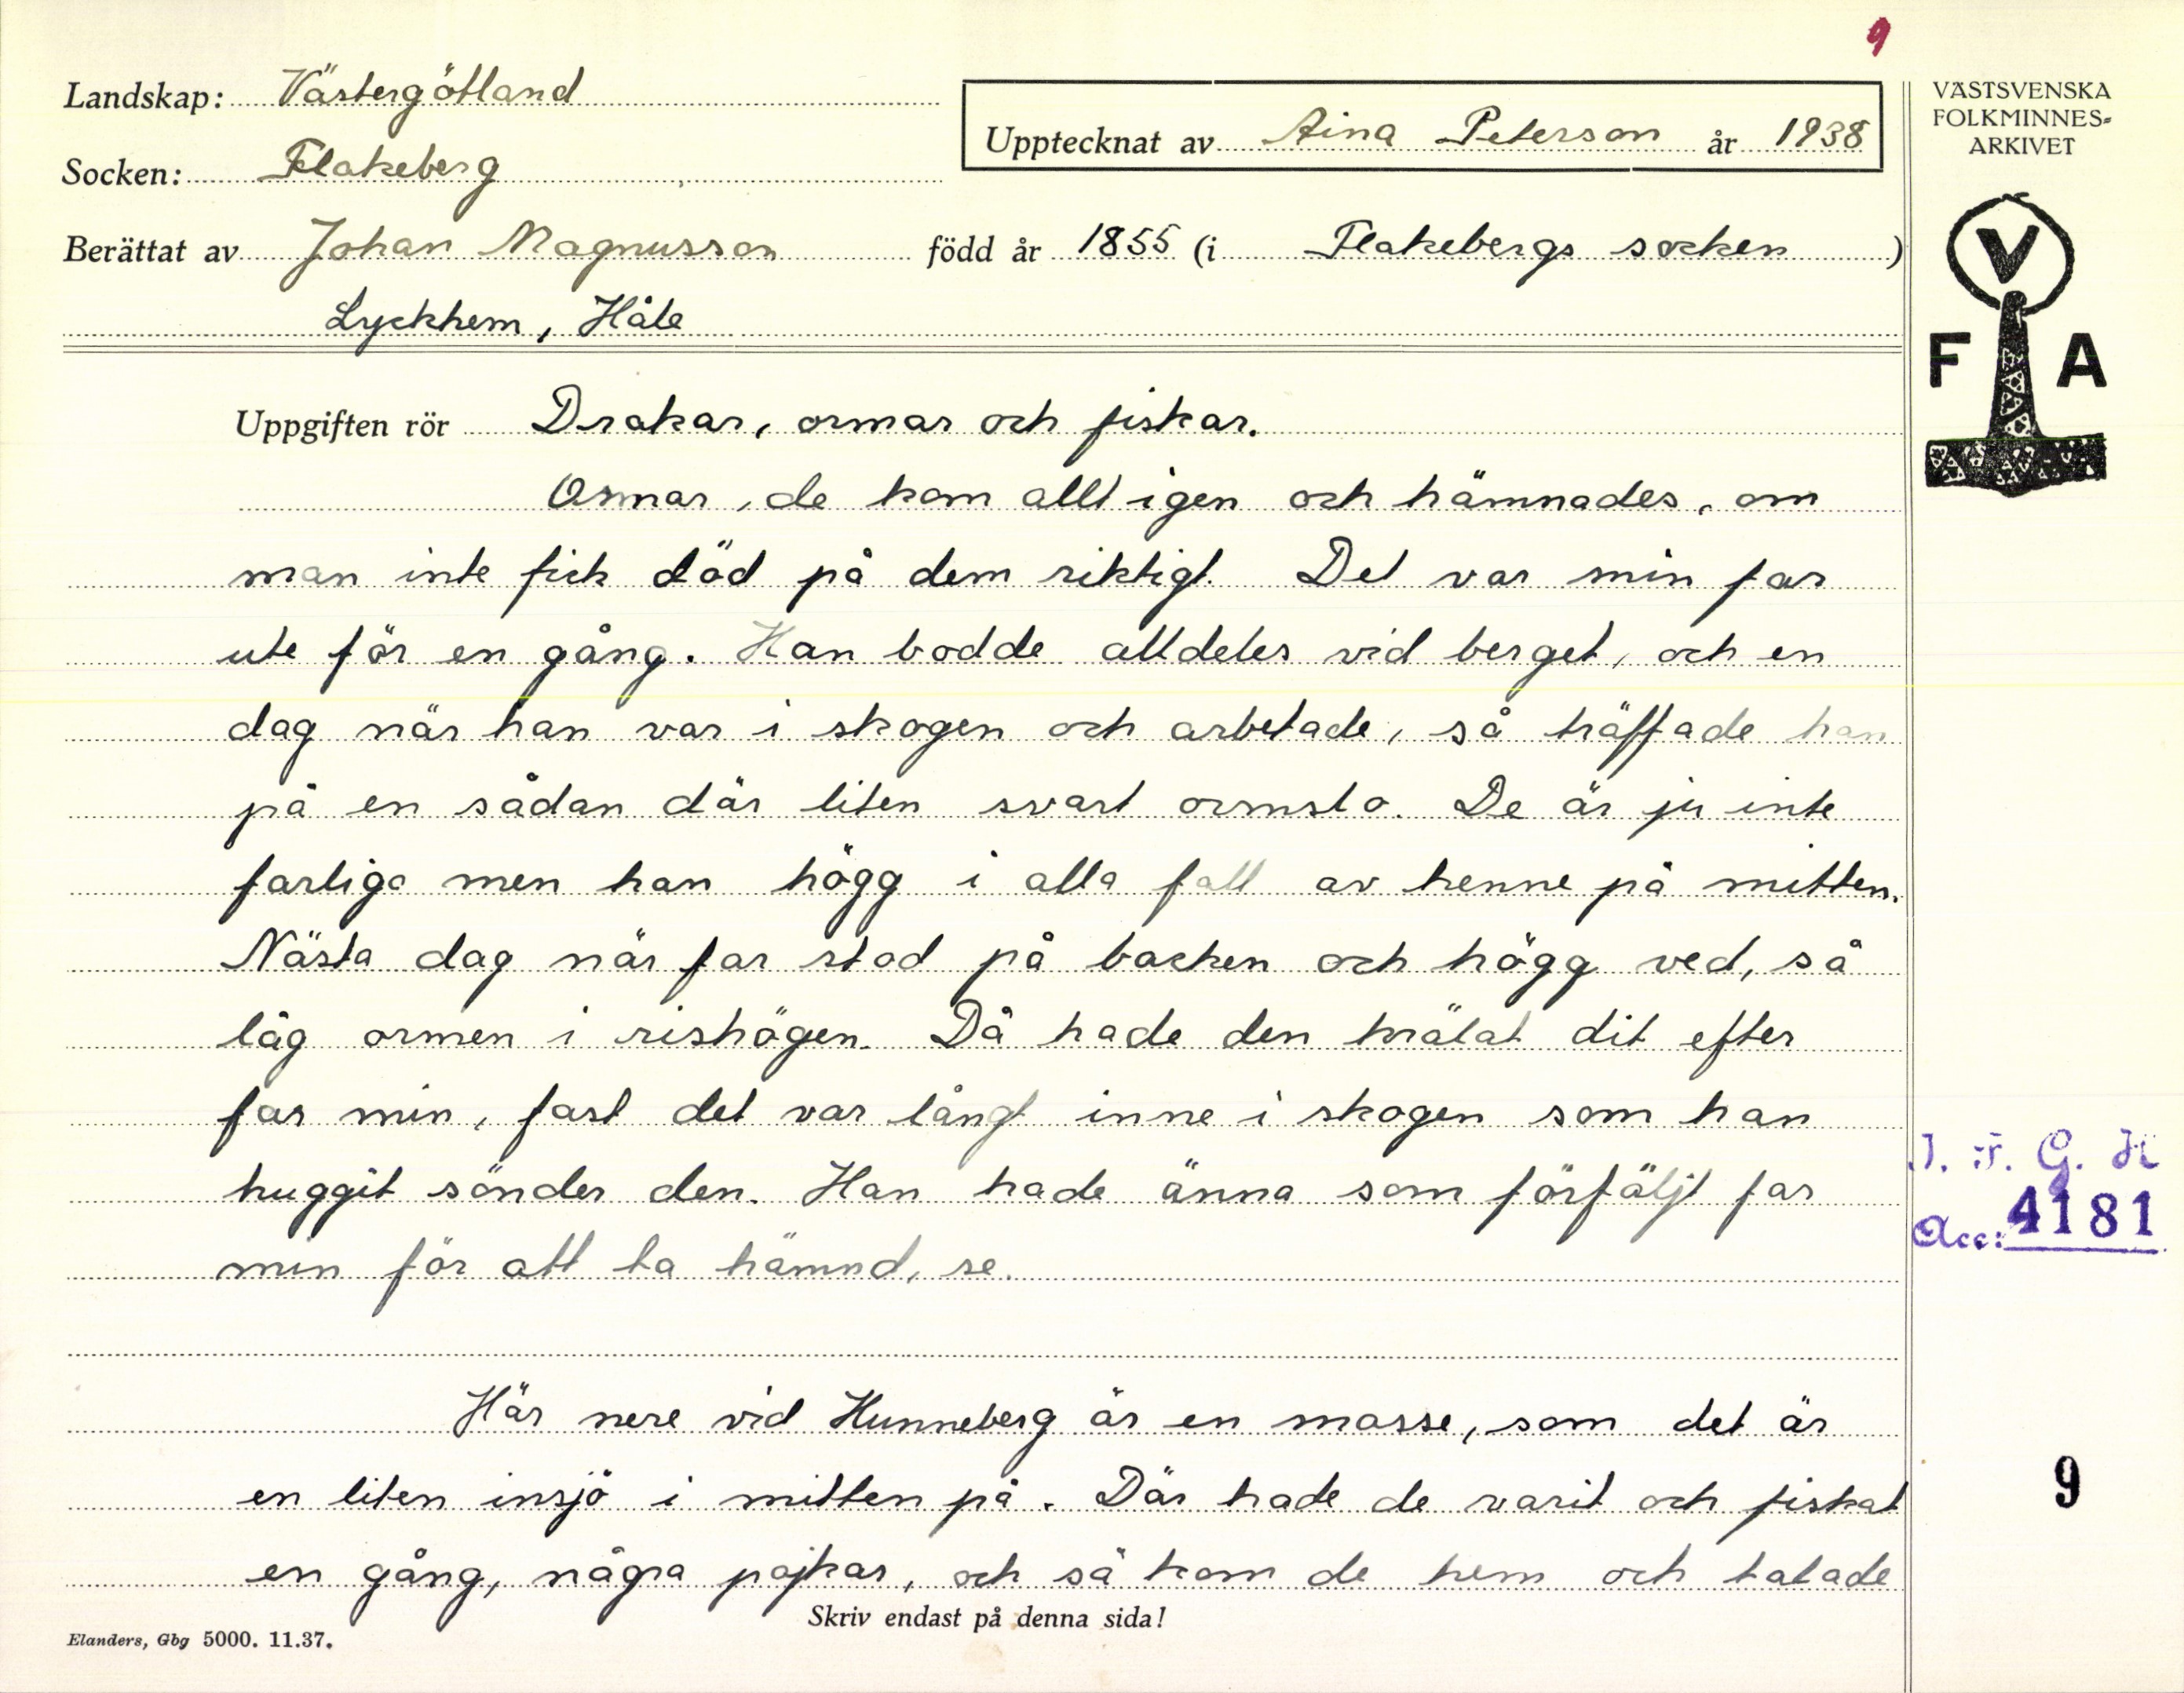 9
Landskap: Västergötland
Socken: Flakeberg
Upptecknat av Aina Peterson år 1938
Berättat av Johan Magnusson född år 1855 (i Flakebergs socken )
Lyckhem, Håle
VÄSTSVENSKA
FOLKMINNES-
ARKIVET
V
F A
Uppgiften rör Drakar, ormar och fiskar.
Ormar, de kom allt igen och hämnades, om
man inte fick död på dem riktigt. Det var min far
ute för en gång. Han bodde alldeles vid berget, och en
dag när han var i skogen och arbetade, så träffade han
på en sådan där liten svart ormslo. De är ju inte
farliga men han högg i alla fall av henne på mitten.
Nästa dag när far stod på backen och högg ved, så
låg ormen i rishögen. Då hade den krälat dit efter
far min, fast det var långt inne i skogen som han
huggit sönder den. Han hade änna som förföljt far
min för att ta hämnd, se.
Här nere vid Hunneberg är en mosse, som det är
en liten insjö i mitten på. Där hade de varit och fiskat
en gång, några pojkar, och så kom de hem och talade
I. F. G. H
Acc: 4181
9
Skriv endast på denna sida!
Elanders, Gbg 5000. 11.37.